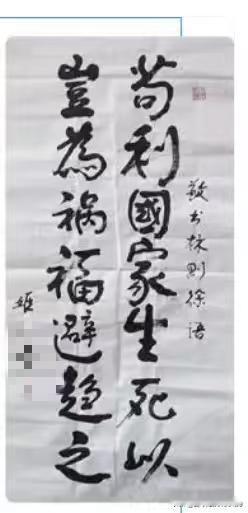 苟利國家生死以
豈為禍福避趨之
敬书林则徐语
姬